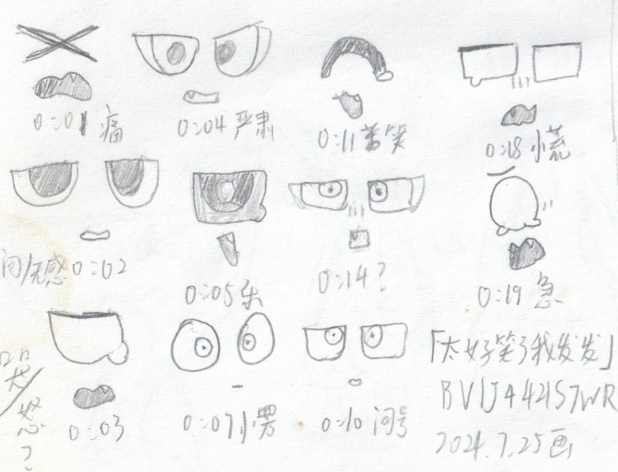 0:01 痛
0:04 严肃
0:11 苦笑
0:18 小慌
0:02
0:05 乐
0:14 ?
0:19 急
0:03
怒
?
0:07 小男
0:10 问号
「太好笑了我发发」
BV1J442157WR
2024.7.25画